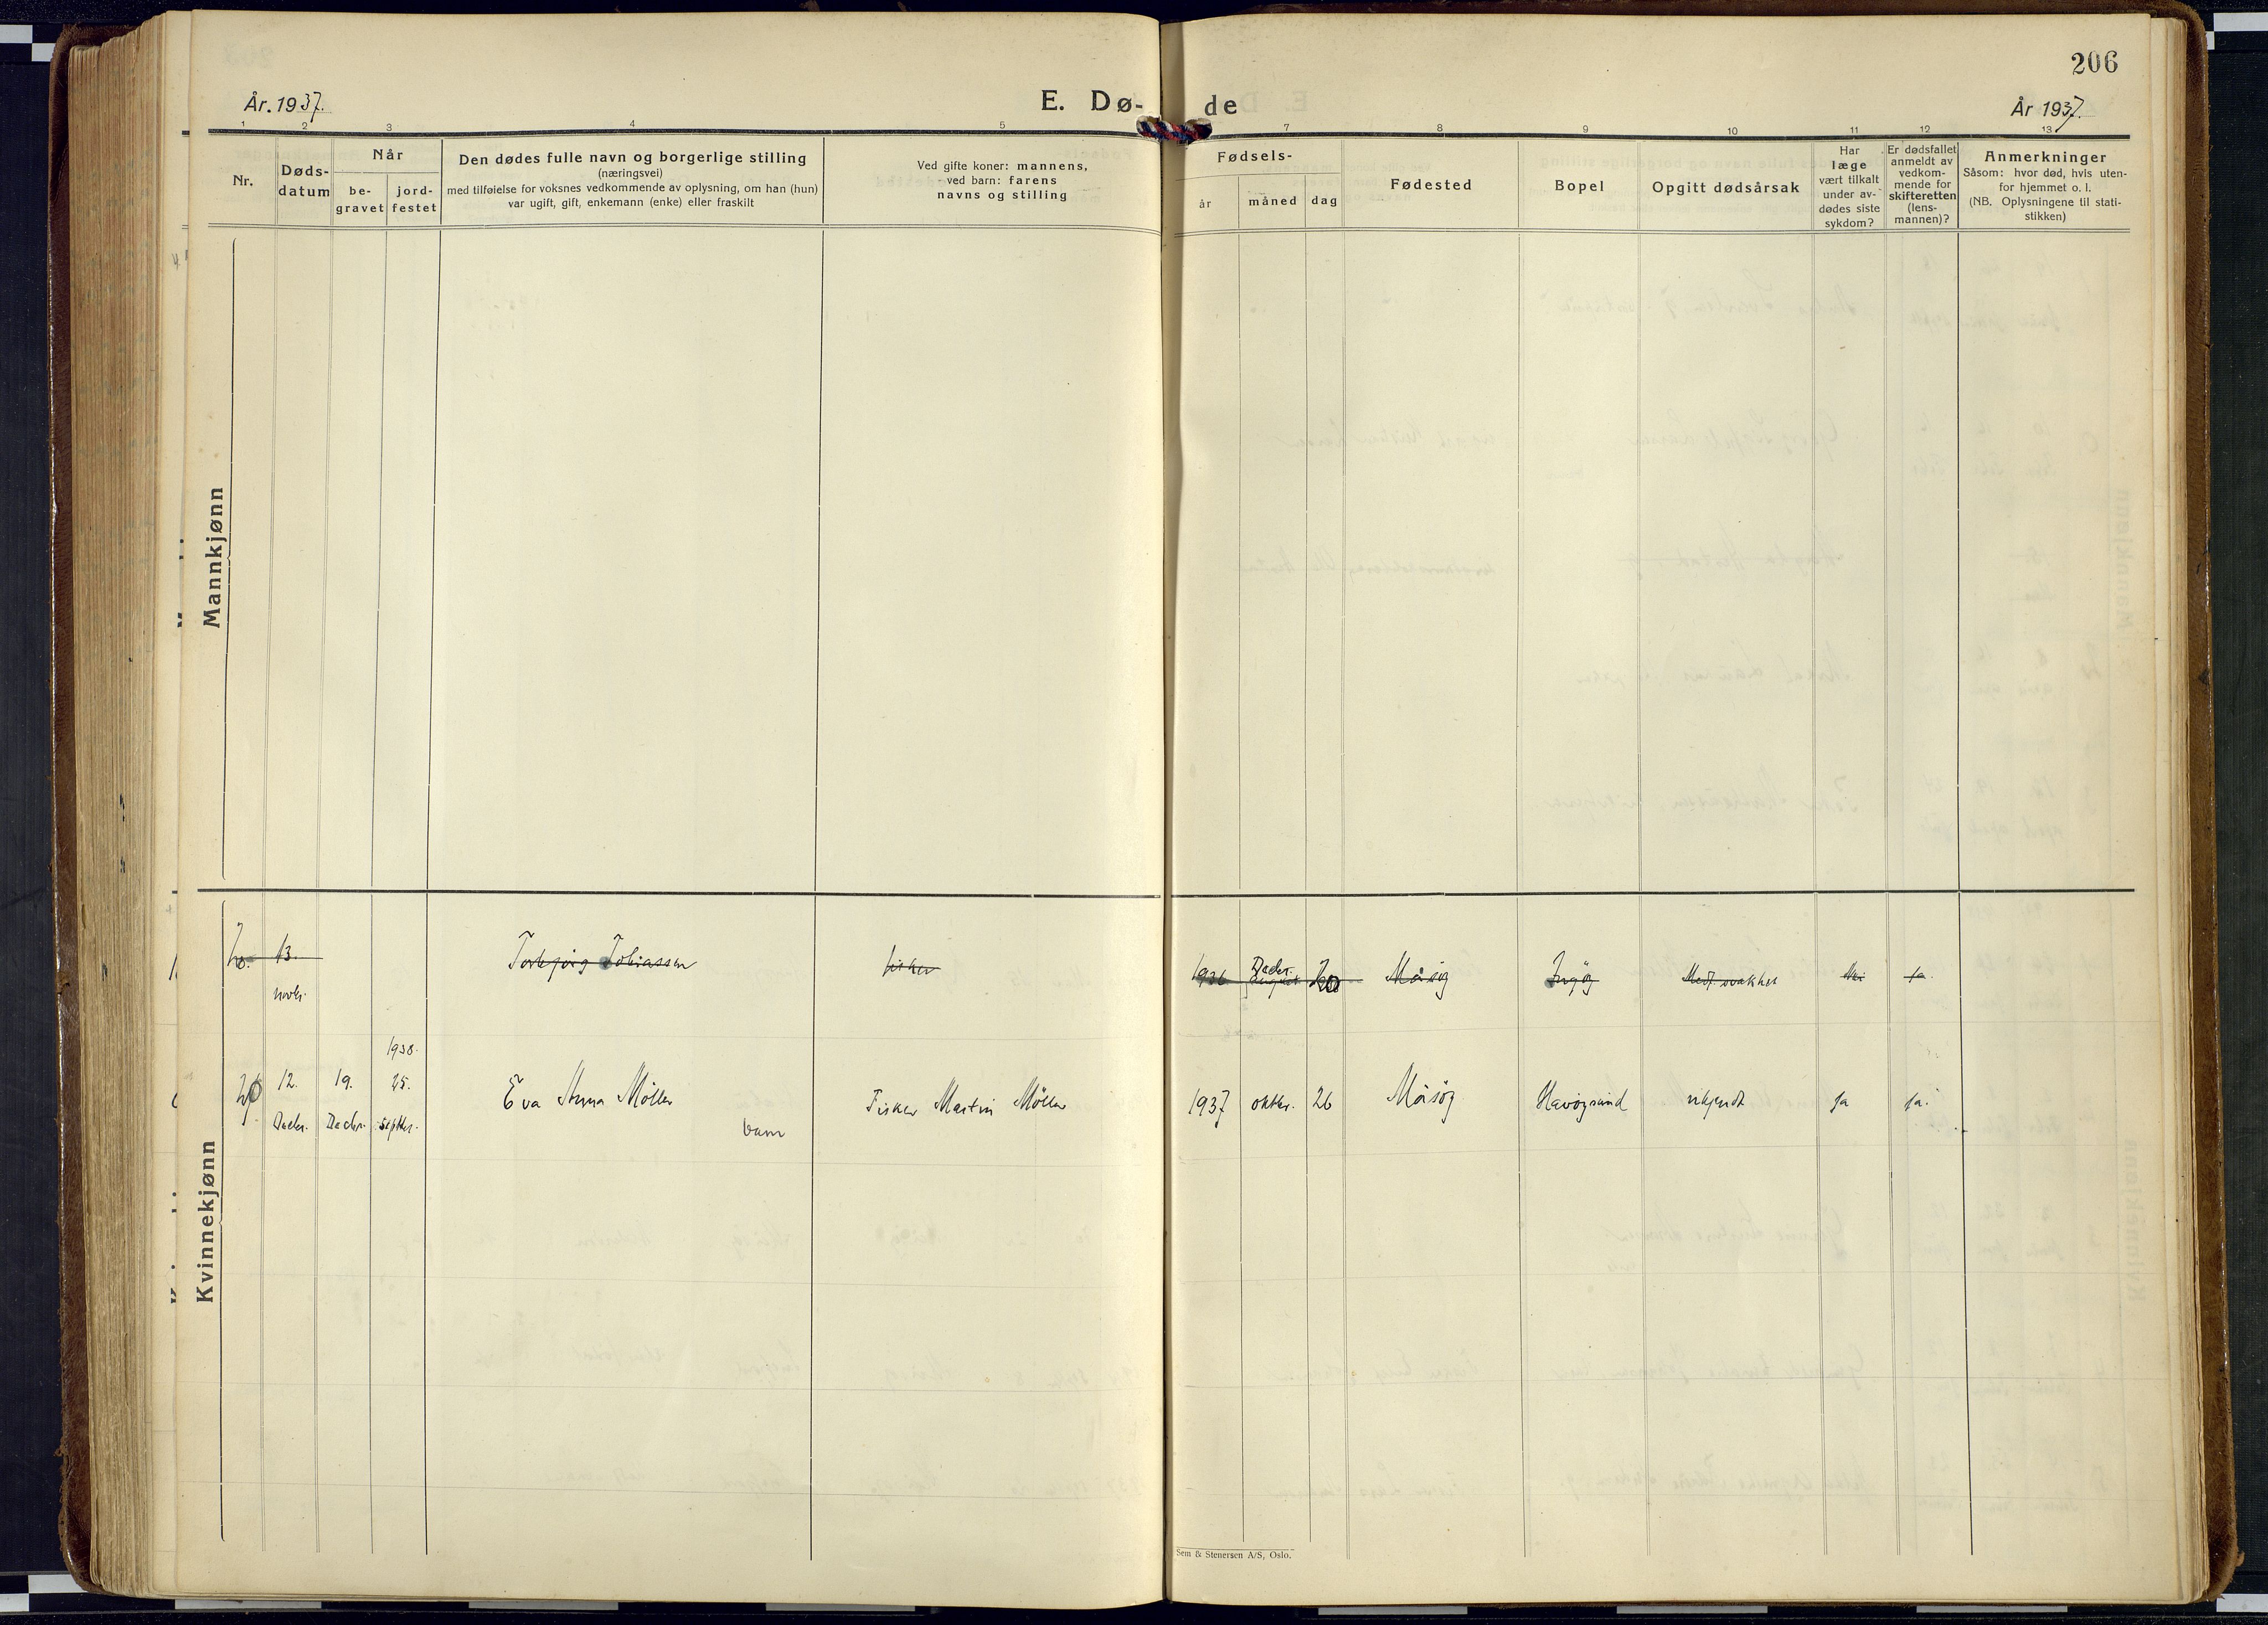 206
År. 1937.
E. Dø-de
År 1937.
1 2 3 4 5 7 8 9 10 11 12 13
Nr.
Døds-
datum
Når
be-
gravet
jord-
festet
Den dødes fulle navn og borgerlige stilling
(næringsvei)
med tilføielse for voksnes vedkommende av oplysning, om han (hun)
var ugift, gift, enkemann (enke) eller fraskilt
Ved gifte koner: mannens,
ved barn: farens
navns og stilling
Fødsels-
år
måned
dag
Fødested
Bopel
Opgitt dødsårsak
Har
læge
vært tilkalt
under av-
dødes siste
sykdom?
Er dødsfallet
anmeldt av
vedkom-
mende for
skifteretten
(lens-
mannen)?
Anmerkninger
Såsom: hvor død, hvis uten-
for hjemmet o. l.
(NB. Oplysningene til stati-
stikken)
Mannkjønn
Kvinnekjønn
13. Torbjørg Tobiassen fisker 1936 Decbr. 20 Måsøy Ingøy Medf. svakhet Nei Ja.
novbr.
1938.
12. 19. 25. Eva Anna Møller Fisker Martin Møller 1937 oktbr. 26 Måsøy Havøysund ukjendt Ja Ja.
Decbr. Decbr. septbr. barn
Sem & Stenersen A/S, Oslo.